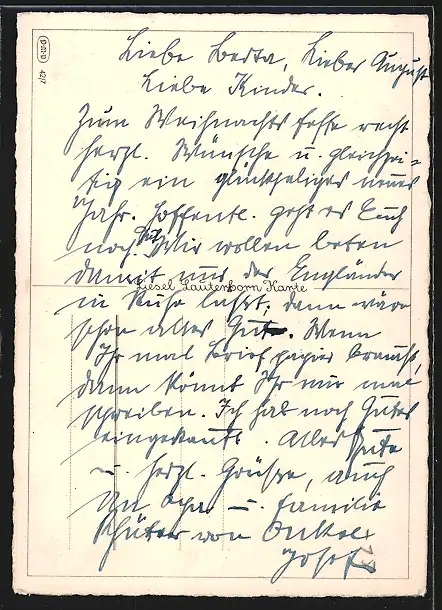 Liebe Berta, Lieber August
Liebe Kinder.
Zum Weihnachtsfeste recht
herzl. Wünsche u. gleichzei=
tig ein glückseliges neues
Jahr. Hoffentl. geht es Euch
noch Gut. Wir wollen beten
damit uns der Engländer
Liesel Lauterborn Karte
in Ruhe lässt, dann wäre
schon alles Gut. Wenn
Ihr mal Briefpapier braucht,
dann könnt Ihr mir mal
schreiben. Ich hab noch Gutes
eingekauft. Alles Gute
u. herzl. Grüsse, auch
an Opa u. Familie
von Onkel
Josef